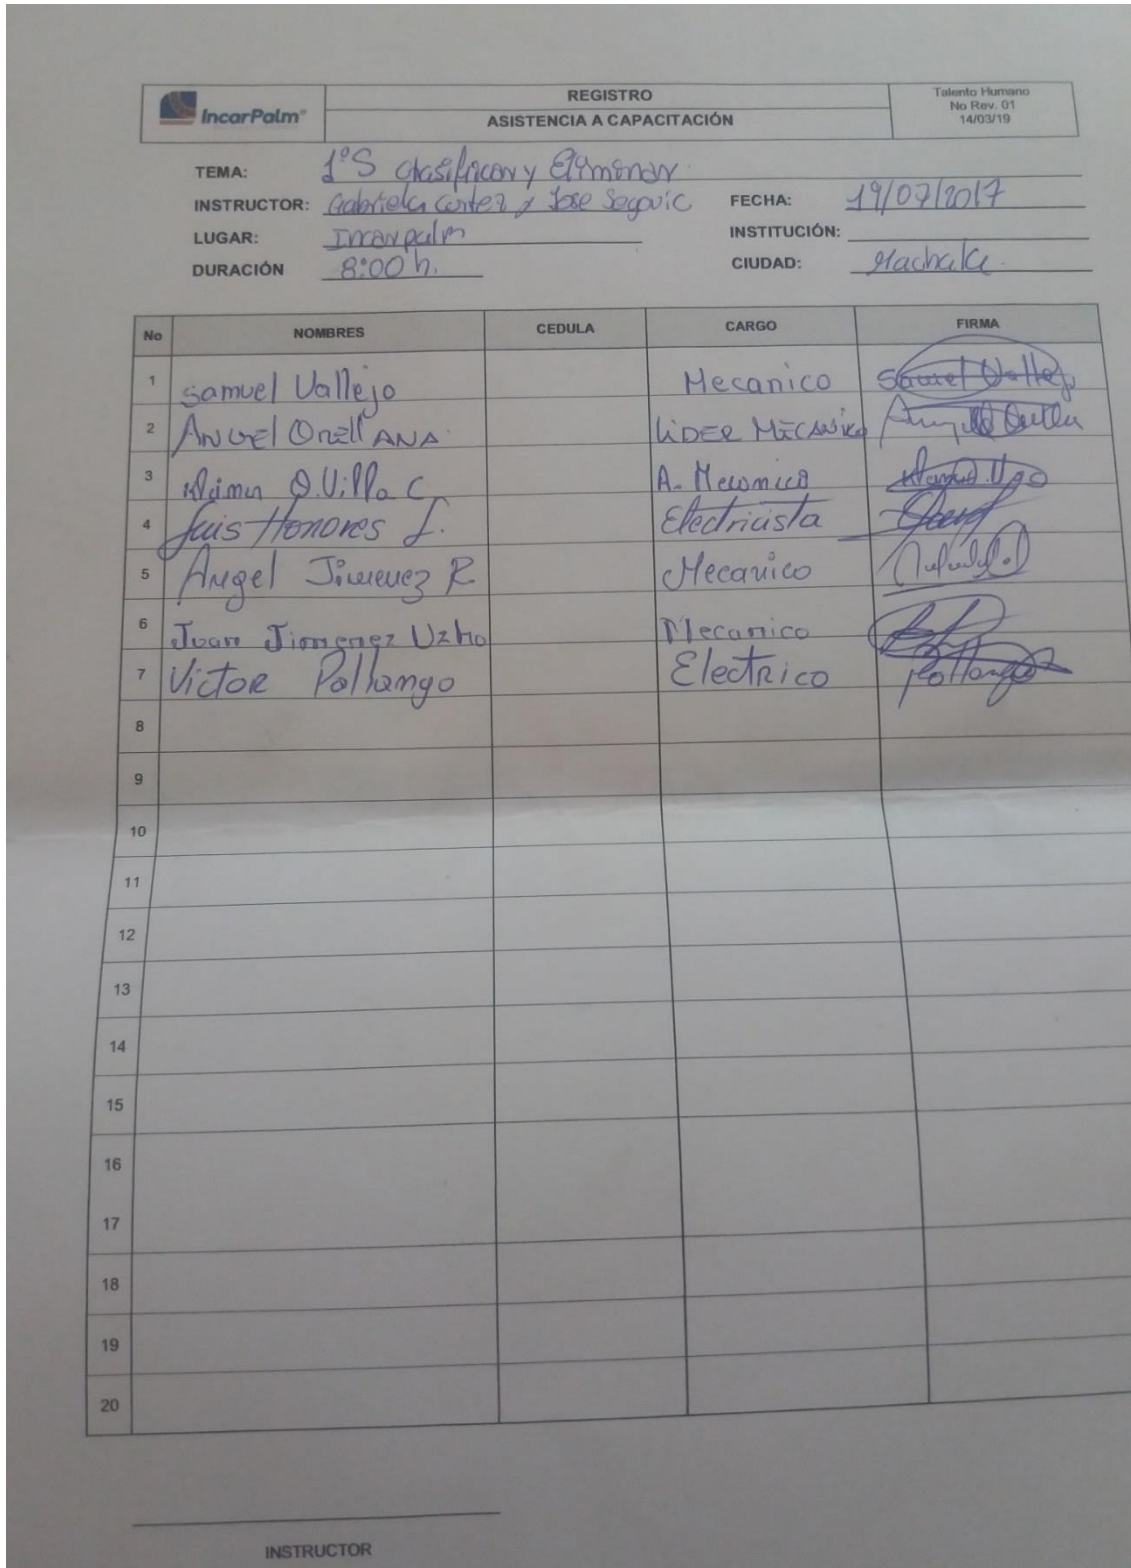 IncarPalm
REGISTRO
ASISTENCIA A CAPACITACIÓN
Talento Humano
No Rev. 01
14/03/19
TEMA: 1°S Clasificar y Eliminar
INSTRUCTOR: Gabriela Cortez y Jose Segovia FECHA: 19/07/2017
LUGAR: Incarpalm INSTITUCIÓN:
DURACIÓN 8:00 h. CIUDAD: Machala
No NOMBRES CEDULA CARGO FIRMA
1 Samuel Vallejo Mecanico Samuel Vallejo
2 ANGEL OrellANA LiDER MECANICO
3 Villa C A. Mecanico
4 Luis Honores L. Electricista
5 Angel Jimenez R Mecanico
6 Juan Jimenez Uzho Mecanico
7 Victor Pallango Electrico Pallango
8
9
10
11
12
13
14
15
16
17
18
19
20
INSTRUCTOR